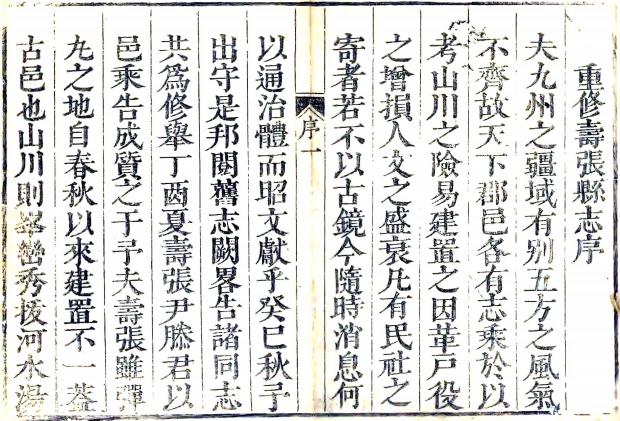 重修壽張縣志序
夫九州之疆域有别五方之風氣
不齊故天下郡邑各有志乘於以
考山川之險易建置之因革戸役
之增損人文之盛衰凡有民社之
寄者若不以古鏡今隨時消息何
序一
以通治體而昭文獻乎癸巳秋予
出守是邦閱舊志闕畧告諸同志
共為修舉丁酉夏壽張尹滕君以
邑乘告成質之于予夫壽張雖彈
丸之地自春秋以來建置不一葢
古邑也山川則峯巒秀拔河水湯